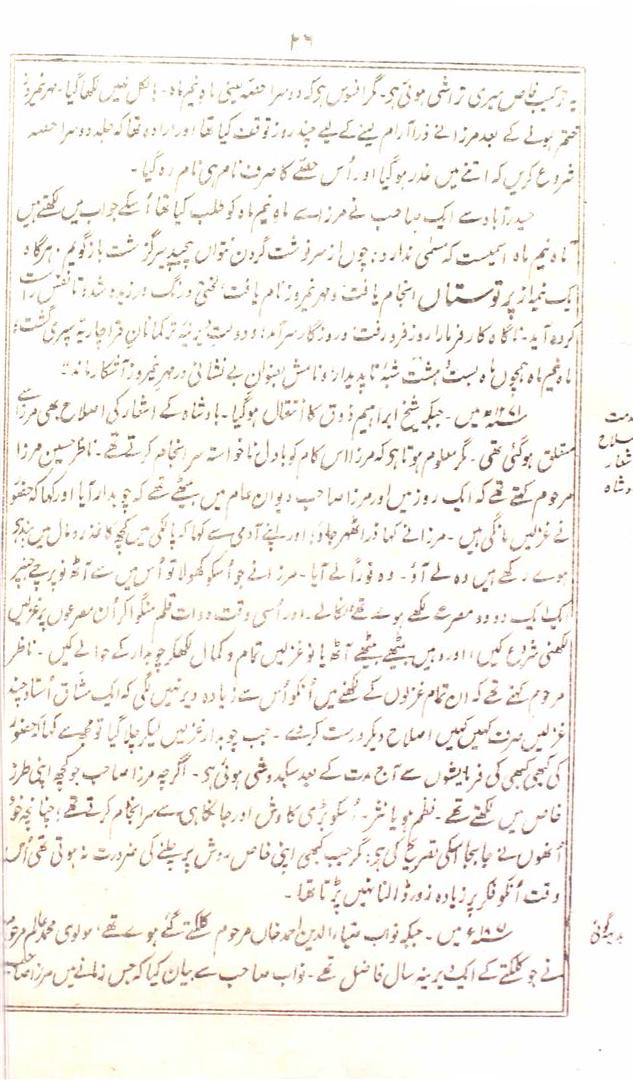 ۲۶
یہ ترکیب خاص میری تراشی ہوئی ہو۔ مگر افسوس ہو کہ دوسرا حصہ یعنی ماہ نیم ماہ۔ بالکل نہیں لکھا گیا۔ مہر نیمروز
ختم ہونے کے بعد مرزا نے ذرا آرام لینے کے لیے چند روز توقف کیا تھا اور ارادہ تھا کہ جلد دوسرا حصہ
شروع کریں کہ اتنے میں غدر ہو گیا اور اُس حصے کا صرف نام ہی نام رہ گیا۔
حیدرآباد سے ایک صاحب نے مرزا سے ماہ نیم ماہ کو طلب کیا تھا اُسکے جواب میں لکھتے ہیں
ماہ نیم ماہ اسمیست کہ مسمٰی ندارد؛ چوں از سرنوشت گردن نتواں پیچید سرگزشت بازگویم۔ ہرگاہ
ایک نیمۂ از پرتوستاں انجام یافت و مہر نیمروز نام یافت لختی درنگ ورزیدہ شد تا نفس راست
کردہ آید۔ ناگاہ کارفرما را روز فرورفت و روزگار سرآمد؛ و دولت دیرینۂ ترکمانان قراجاریہ سپری گشت؛
ماہ نیم ماہ ہمچوں ماہ بست و ہشت شبہ ناپدیدار و نامش بعنوان بے نشانی در مہر نیمروز آشکار ماند"
۱۲۷۱ھ میں۔ جبکہ شیخ ابراہیم ذوق کا انتقال ہو گیا۔ بادشاہ کے اشعار کی اصلاح بھی مرزا سے
متعلق ہو گئی تھی۔ مگر معلوم ہوتا ہو کہ مرزا اس کام کو بادل ناخواستہ سرانجام کرتے تھے۔ ناظر حسین مرزا
مرحوم کہتے تھے کہ ایک روز میں اور مرزا صاحب دیوان عام میں بیٹھے تھے کہ چوبدار آیا اور کہا کہ حضور
نے غزلیں مانگی ہیں۔ مرزا نے کہا ذرا ٹھہر جاؤ؛ اور اپنے آدمی سے کہا کہ پالکی میں کچھ کاغذ رومال میں بندھے
ہوے رکھے ہیں وہ لے آؤ۔ وہ فوراً لے آیا۔ مرزا نے جو اُسکو کھولا تو اُس میں سے آٹھ نو پرچے جنپر
ایک ایک دو دو مصرعے لکھے ہوے تھے نکالے۔ اور اُسی وقت دوات قلم منگوا کر اُن مصرعوں پر غزلیں
لکھنی شروع کیں، اور وہیں بیٹھے بیٹھے آٹھ یا نو غزلیں تمام و کمال لکھکر چوبدار کے حوالے کیں۔ ناظر
مرحوم کہتے تھے کہ ان تمام غزلوں کے لکھنے میں اُنکو اُس سے زیادہ دیر نہیں لگی کہ ایک مشاق اُستاد چند
غزلیں صرف کہیں کہیں اصلاح دیکر درست کر دے۔ جب چوبدار غزلیں لیکر چلا گیا تو مجھ سے کہا کہ حضور
کی کبھی کبھی کی فرمایشوں سے آج مدت کے بعد سبکدوشی ہوئی ہو۔ اگرچہ مرزا صاحب جو کچھ اپنی طرز
خاص میں لکھتے تھے۔ نظم ہو یا نثر۔ اُسکو بڑی کاوش اور جانکاہی سے سرانجام کرتے تھے؛ چنانچہ خود
اُنھوں نے جابجا اسکی تصریح کی ہو؛ مگر جب کبھی اپنی خاص روش پر چلنے کی ضرورت نہ ہوتی تھی اُس
وقت اُنکو فکر پر زیادہ زور ڈالنا نہیں پڑتا تھا۔
میں۔ جبکہ نواب ضیاءالدین احمد خاں مرحوم کلکتے گئے ہوے تھے؛ مولوی محمد عالم مرحوم
نے جو کلکتے کے ایک دیرینہ سال فاضل تھے۔ نواب صاحب سے بیان کیا کہ جس زمانے میں مرزا صاحب